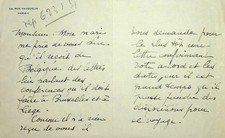 Monsieur, Mon mari
me prie de vous dire
qu'il reçoit de
Belgique des lettres
lui parlant des
conférences qu'il doit
faire à Bruxelles et à
Liège.
Comme il n'a rien
reçu de vous il
vous demande pour
la plus
confirmer son
accord et les
dates par il est
grand temps qu'il
prenne des
dispositions pour
ce voyage.